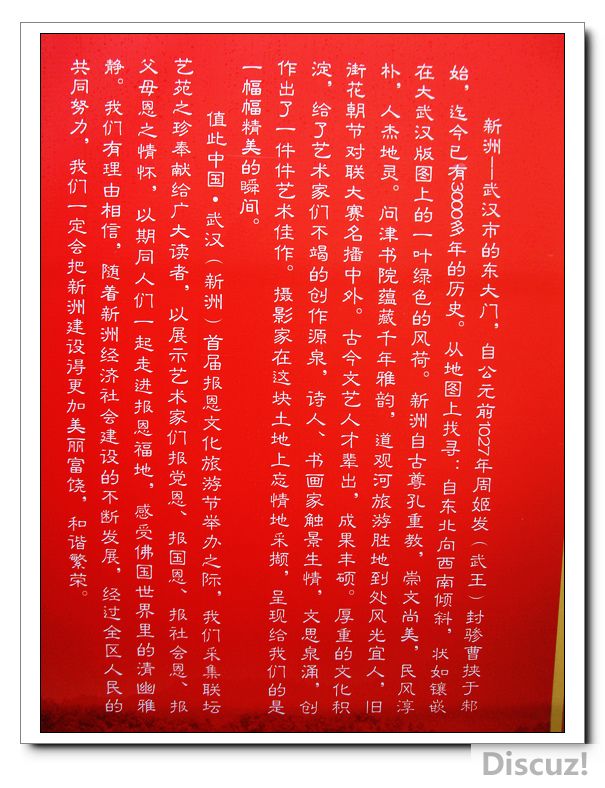 新洲——武汉市的东大门，自公元前1027年周姬发（武王）封骖曹挟于邾
始，迄今已有3000多年的历史。从地图上找寻：自东北向西南倾斜，状如镶嵌
在大武汉版图上的一叶绿色的风荷。新洲自古尊孔重教，崇文尚美，民风淳
朴，人杰地灵。问津书院蕴藏千年雅韵，道观河旅游胜地到处风光宜人，旧
街花朝节对联大赛名播中外。古今文艺人才辈出，成果丰硕。厚重的文化积
淀，给了艺术家们不竭的创作源泉，诗人、书画家触景生情，文思泉涌，创
作出了一件件艺术佳作。摄影家在这块土地上忘情地采撷，呈现给我们的是
一幅幅精美的瞬间。
值此中国·武汉（新洲）首届报恩文化旅游节举办之际，我们采集联坛
艺苑之珍奉献给广大读者，以展示艺术家们报党恩、报国恩、报社会恩、报
父母恩之情怀，以期同人们一起走进报恩福地，感受佛国世界里的清幽雅
静。我们有理由相信，随着新洲经济社会建设的不断发展，经过全区人民的
共同努力，我们一定会把新洲建设得更加美丽富饶，和谐繁荣。
Discuz!